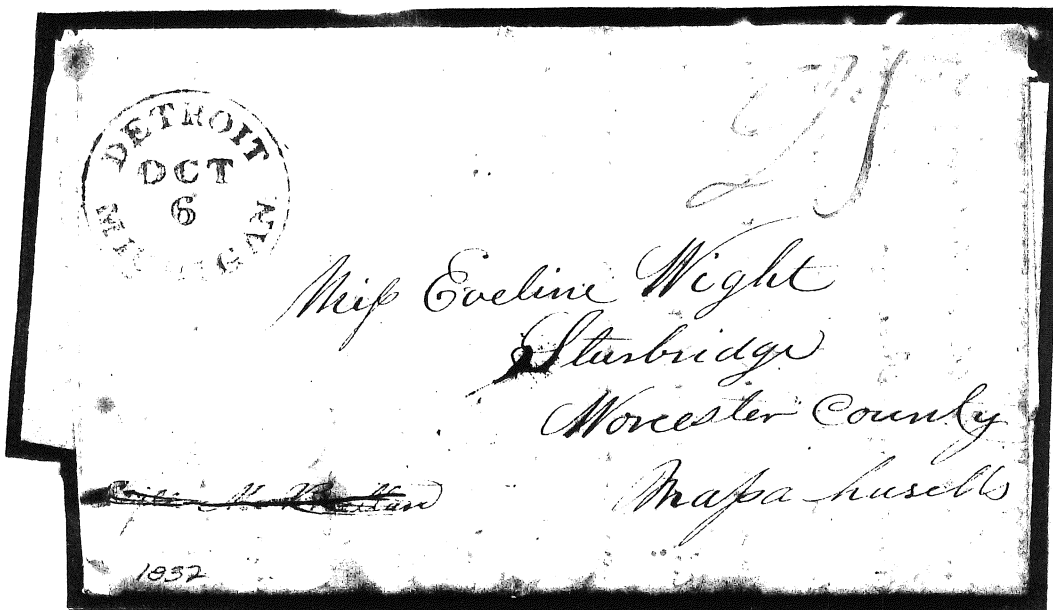 DETROIT
OCT
6
25
Miſs Eveline Wight
Sturbridge
Worcester County
Maſsa-husetts
1832